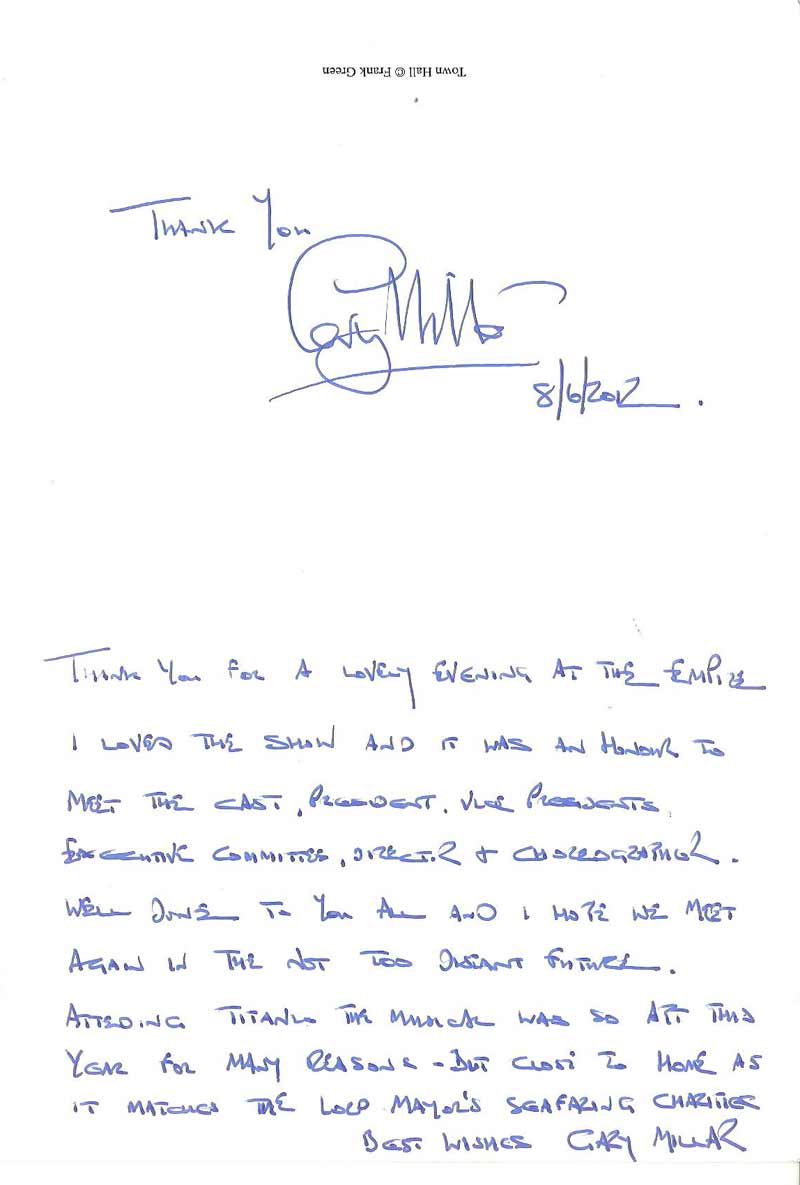 Town Hall © Frank Green
THANK YOU
Gary Millar
8/6/2012.
THANK YOU FOR A LOVELY EVENING AT THE EMPIRE
I LOVED THE SHOW AND IT WAS AN HONOUR TO
MEET THE CAST, PRESIDENT, VICE PRESIDENTS,
EXECUTIVE COMMITTEE, DIRECTOR + CHOREOGRAPHER.
WELL DONE TO YOU ALL AND I HOPE WE MEET
AGAIN IN THE NOT TOO DISTANT FUTURE.
ATTENDING TITANIC THE MUSICAL WAS SO APT THIS
YEAR FOR MANY REASONS - BUT CLOSE TO HOME AS
IT MATCHES THE LORD MAYOR'S SEAFARING CHARITIES
BEST WISHES GARY MILLAR